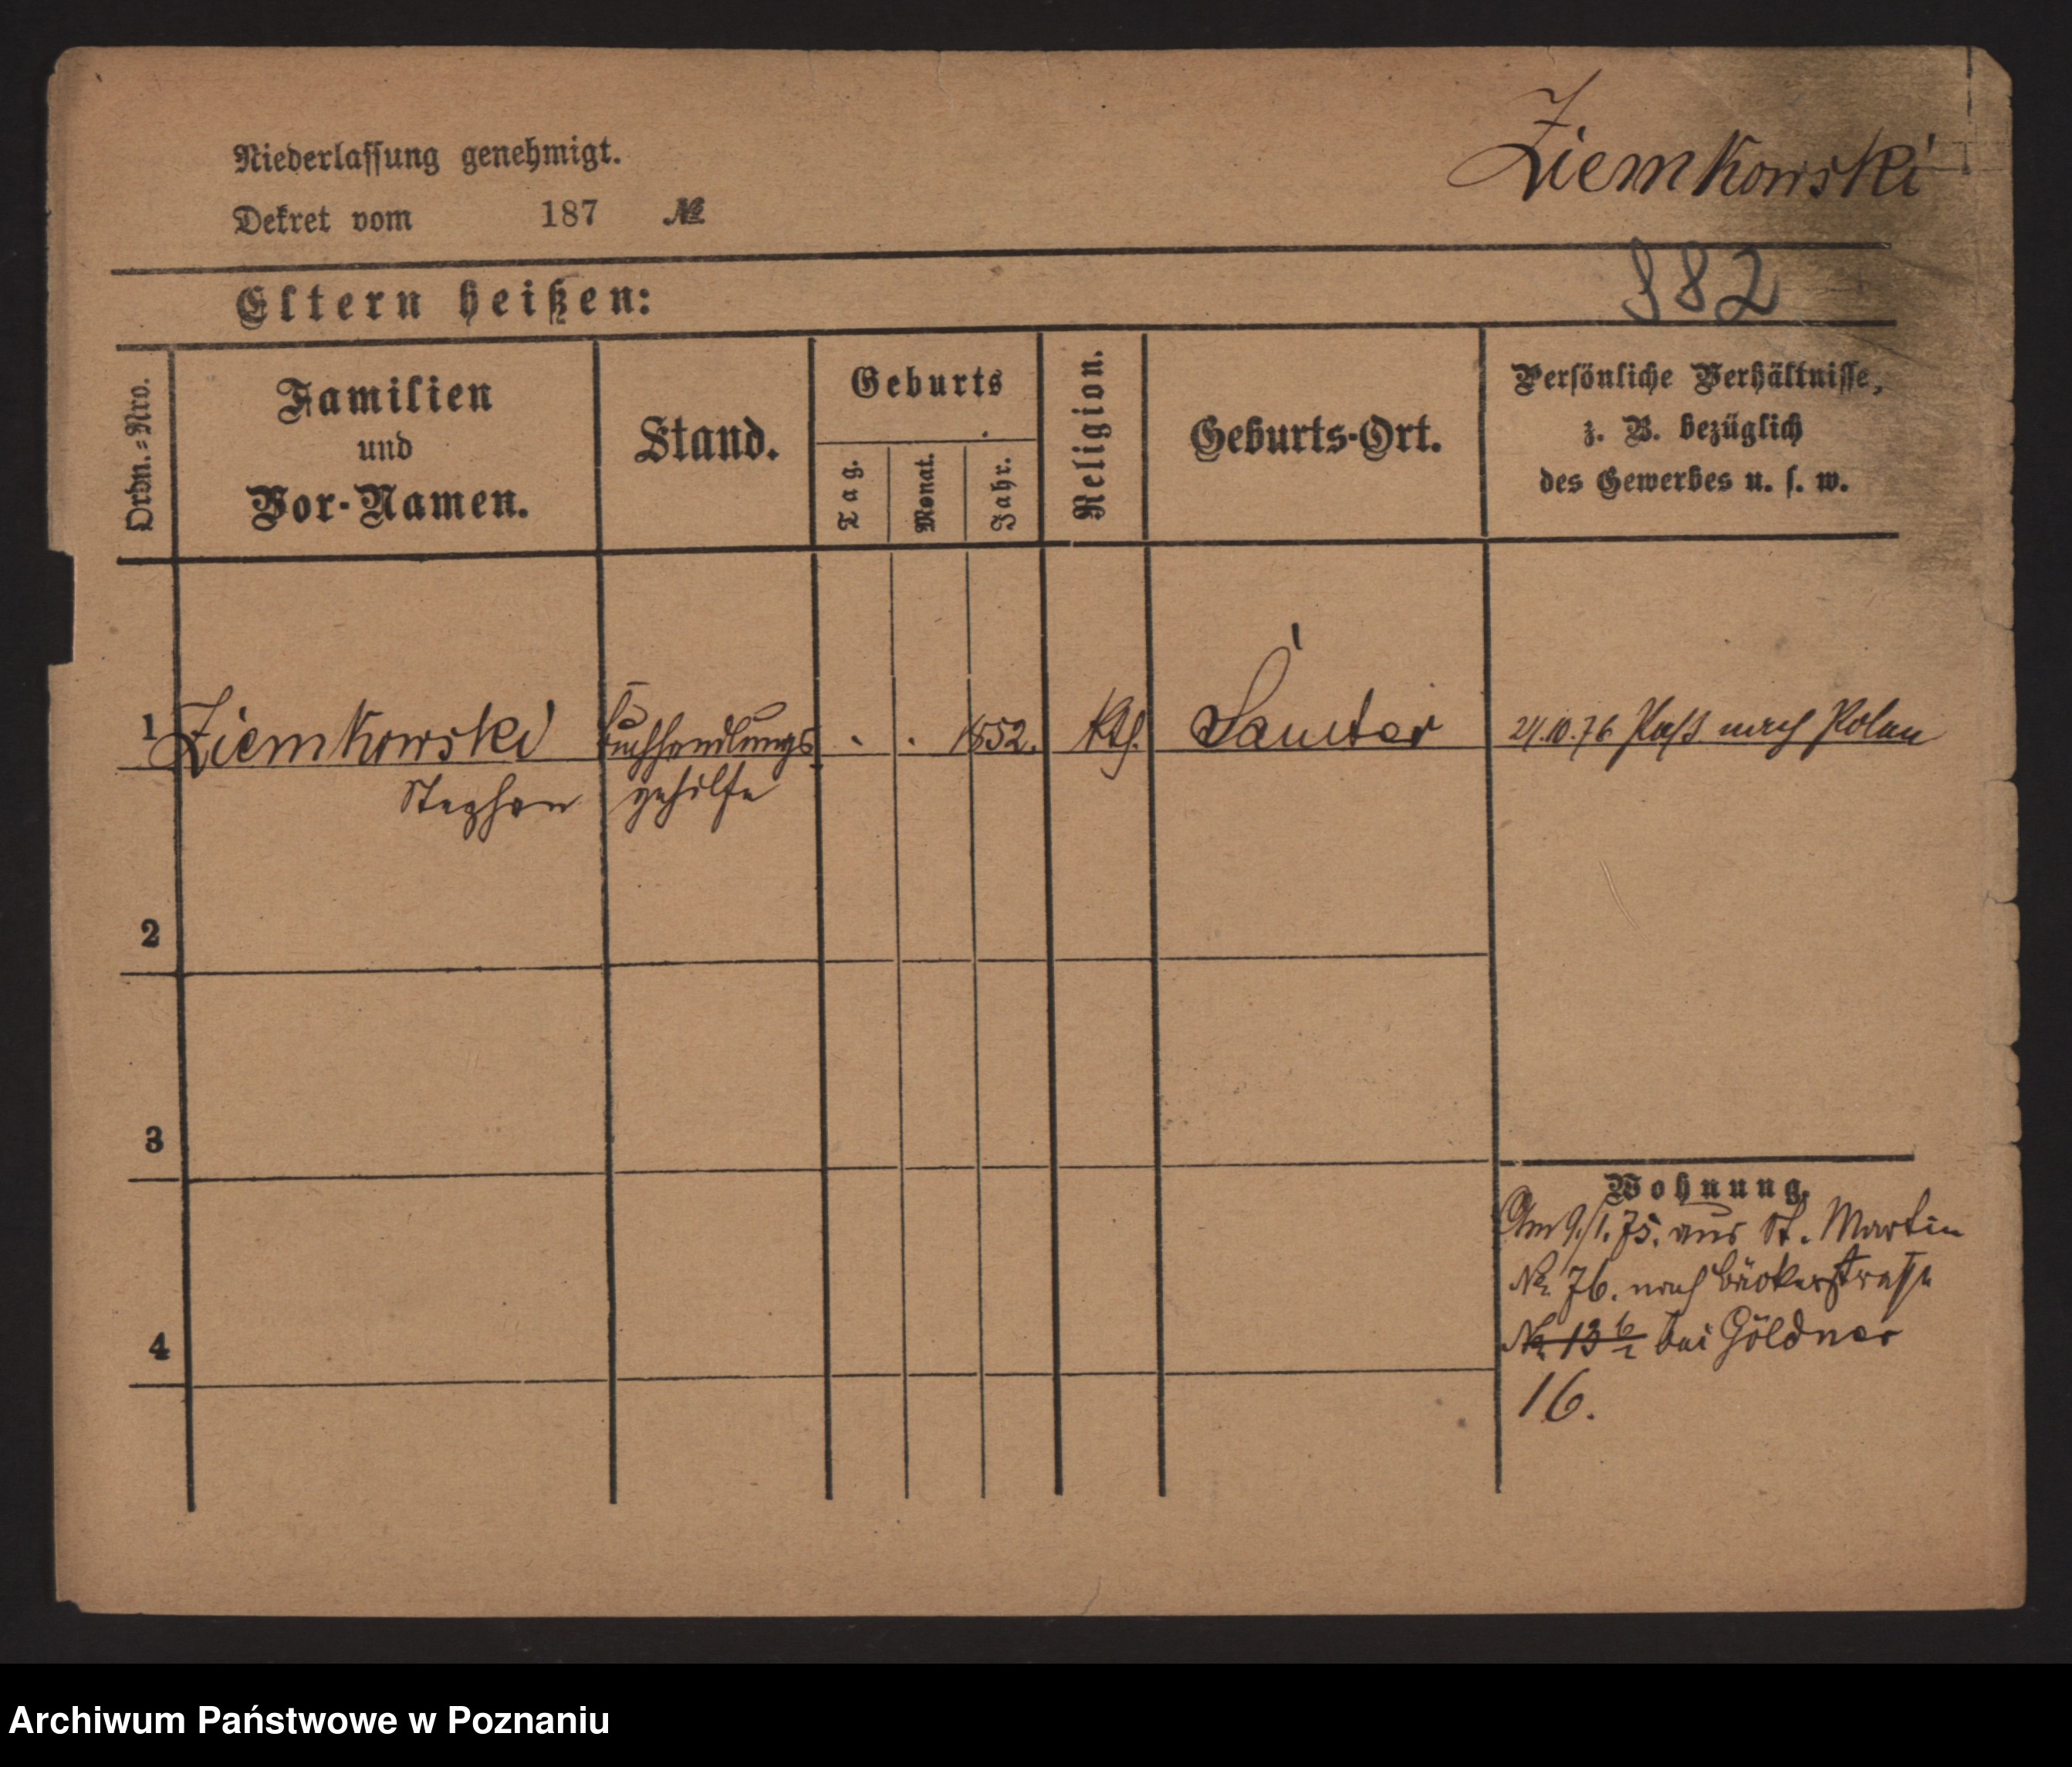 Ziemkowski
Niederlassung genehmigt.
Dekret vom 187 №
882
Eltern heißen:
Ordn.=Nro.
Familien
und
Vor-Namen.
Stand.
Geburts
Tag.
Monat.
Jahr.
Religion.
Geburts-Ort.
Persönliche Verhältnisse,
z. B. bezüglich
des Gewerbes u. s. w.
1 Ziemkowski Buchhandlungs . . 1852. kth. Samter 24.10.76 Pass nach Polen
Stephan gehilfe
2
3
4
Wohnung.
Am 9./1. 75. aus St. Martin
No. 76. nach Bäckerstrasse
No. 13 b/I bei Göldner
16.
Archiwum Państwowe w Poznaniu